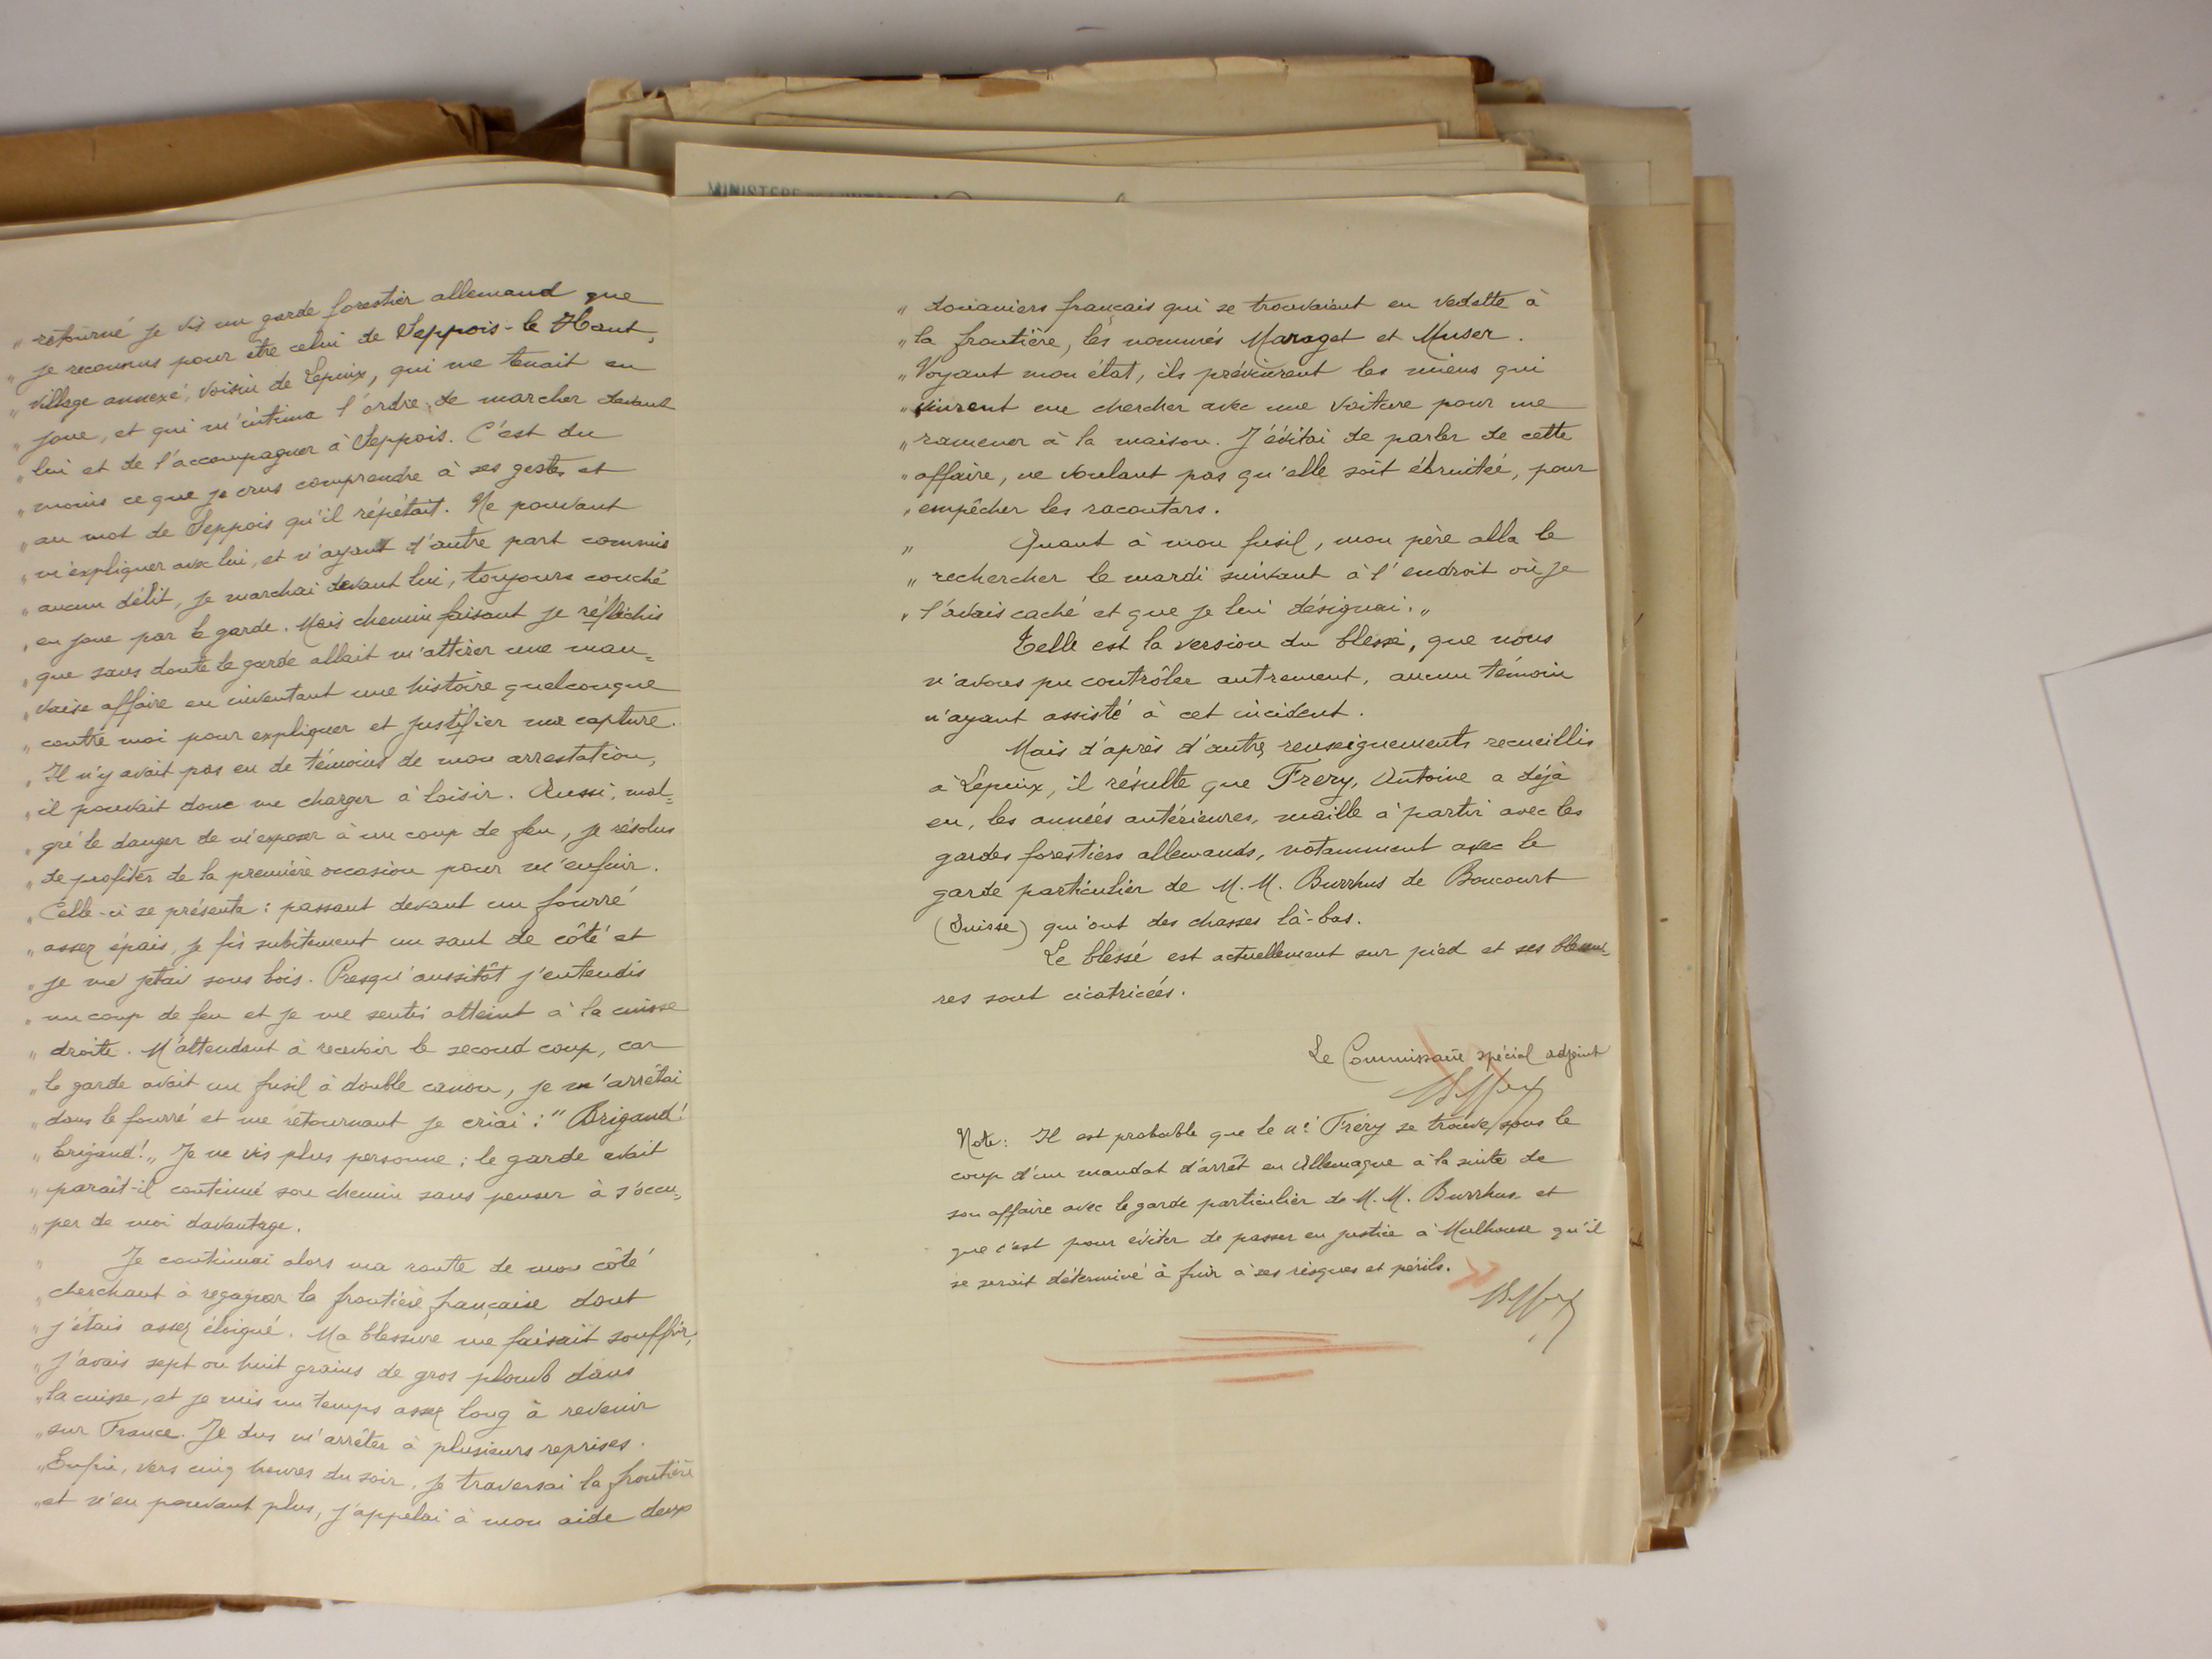 „ retourné je vis un garde forestier allemand que
„ je reconnus pour être celui de Seppois-le Haut,
„ village annexé, voisin de Lepuix, qui me tenait en
„ joue, et qui m'intima l'ordre de marcher devant
„ lui et de l'accompagner à Seppois. C'est du
„ moins ce que je crus comprendre à ses gestes et
„ au mot de Seppois qu'il répétait. Ne pouvant
„ m'expliquer avec lui, et n'ayant d'autre part commis
„ aucun délit, je marchai devant lui, toujours couché
„ en joue par le garde. Mais chemin faisant je réfléchis
„ que sans doute le garde allait m'attirer une mau=
„ vaise affaire en inventant une histoire quelconque
„ contre moi pour expliquer et justifier ma capture.
„ Il n'y avait pas eu de témoins de mon arrestation,
„ il pouvait donc me charger à loisir. Aussi, mal=
„ gré le danger de m'exposer à un coup de feu, je résolus
„ de profiter de la première occasion pour m'enfuir.
„ Celle-ci se présenta : passant devant un fourré
„ assez épais, je fis subitement un saut de côté et
„ je me jetai sous bois. Presqu'aussitôt j'entendis
„ un coup de feu et je me sentis atteint à la cuisse
„ droite. M'attendant à recevoir le second coup, car
„ le garde avait un fusil à double canon, je m'arrêtai
„ dans le fourré et me retournant je criai : " Brigand!
„ brigand! „ Je ne vis plus personne ; le garde avait
„ parait-il continué son chemin sans penser à s'occu=
„ per de moi davantage.
„ Je continuai alors ma route de mon côté
„ cherchant à regagner la frontière française dont
„ j'étais assez éloigné. Ma blessure me faisait souffrir,
„ j'avais sept ou huit grains de gros plomb dans
„ la cuisse, et je mis un temps assez long à revenir
„ sur France. Je dus m'arrêter à plusieurs reprises.
„ Enfin, vers cinq heures du soir, je traversai la frontière
„ et n'en pouvant plus, j'appelai à mon aide deux
MINISTERE
„ douaniers français qui se trouvaient en vedette à
„ la frontière, les nommés Maraget et Muser.
„ Voyant mon état, ils prévinrent les miens qui
„ vinrent me chercher avec une voiture pour me
„ ramener à la maison. J'évitai de parler de cette
„ affaire, ne voulant pas qu'elle soit ébruitée, pour
„ empêcher les racontars.
„ Quant à mon fusil, mon père alla le
„ rechercher le mardi suivant à l'endroit où je
„ l'avais caché et que je lui désignai. „
Telle est la version du blessé, que nous
n'avons pu contrôler autrement, aucun témoin
n'ayant assisté à cet incident.
Mais d'après d'autres renseignements recueillis
à Lepuix, il résulte que Frery, Antoine a déjà
eu, les années antérieures, maille à partir avec les
gardes forestiers allemands, notamment avec le
garde particulier de M.M. Burrhus de Boncourt
(Suisse) qui ont des chasses là-bas.
Le blessé est actuellement sur pied et ses blessu=
res sont cicatricées.
Le Commissaire spécial adjoint
Note : Il est probable que le né Fréry se trouve sous le
coup d'un mandat d'arrêt en Allemagne à la suite de
son affaire avec le garde particulier de M.M. Burrhus et
que c'est pour éviter de passer en justice à Mulhouse qu'il
se serait déterminé à fuir à ses risques et périls.